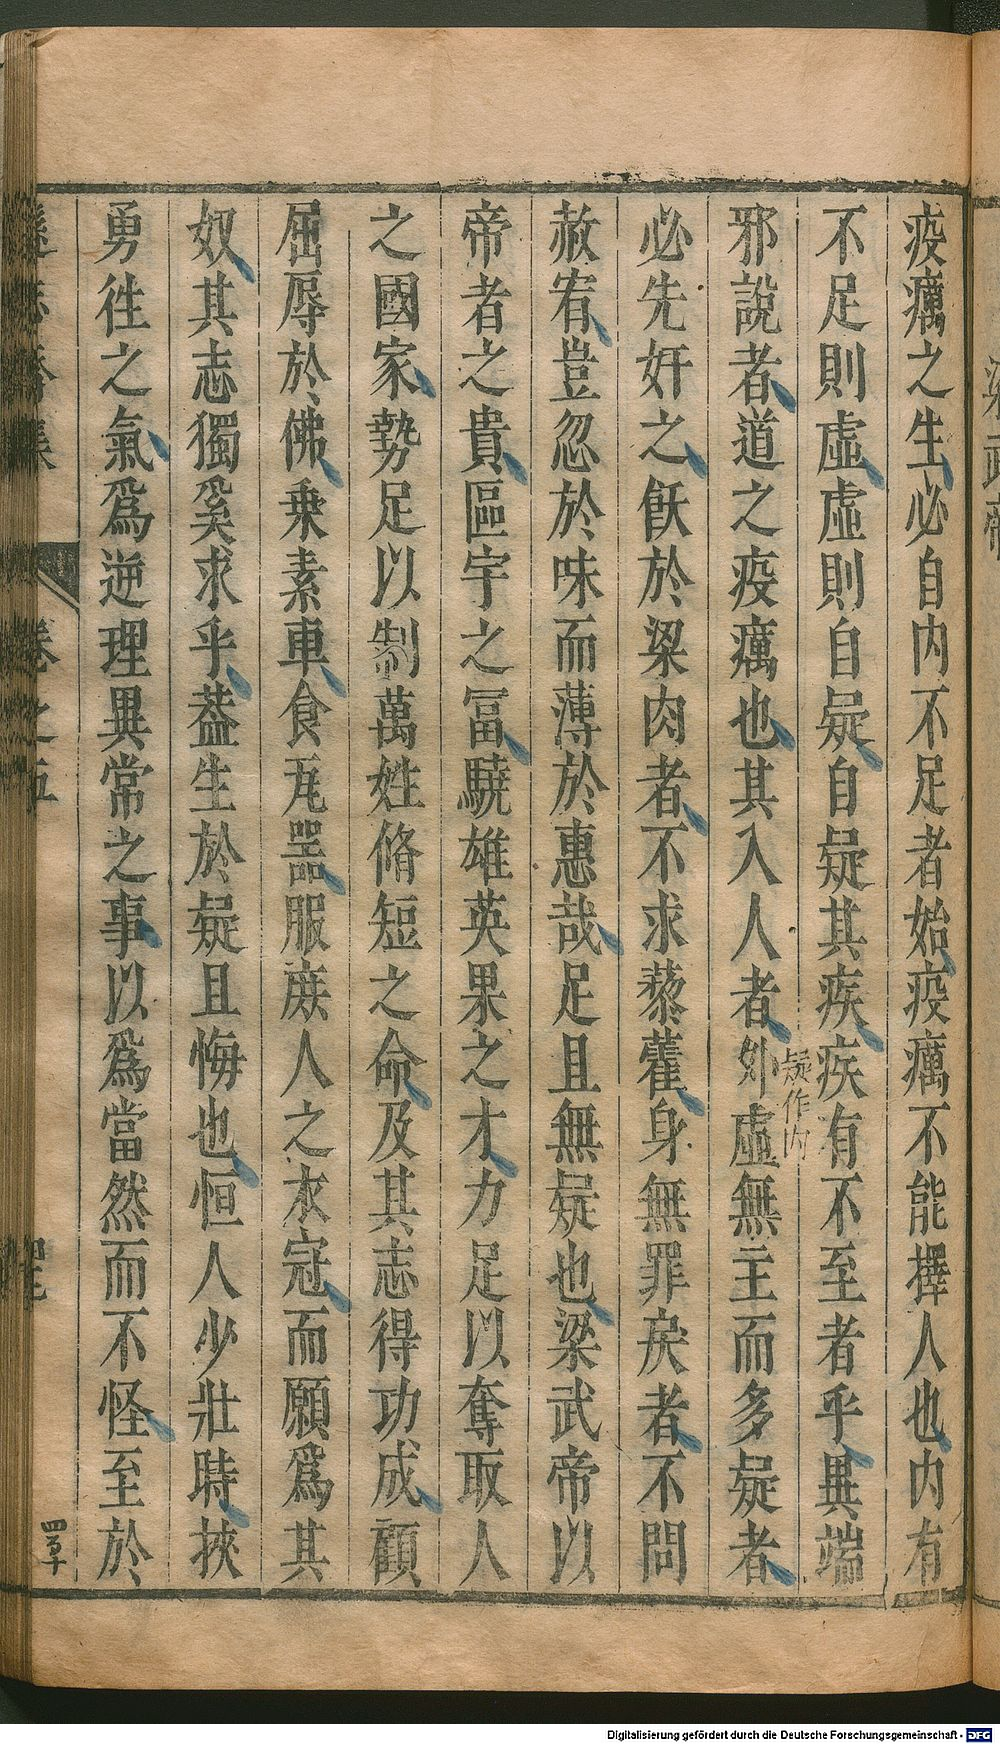 疫癘之生必自内不足者始疫癘不能擇人也内有
不足則虛虛則自疑自疑其疾疾有不至者乎異端
邪說者道之疫癘也其入人者外虛無主而多疑者
疑作内
必先奸之飫於粱肉者不求藜藿身無罪戾者不問
赦宥豈忽於味而薄於惠哉足且無疑也梁武帝以
帝者之貴區宇之冨驍雄英果之才力足以奪取人
之國家勢足以制萬姓脩短之命及其志得功成顧
屈辱於佛乗素車食瓦器服庶人之衣冠而願爲其
奴其志獨奚求乎葢生於疑且悔也恒人少壯時挾
勇徃之氣爲逆理異常之事以爲當然而不怪至於
卷之五
梁武帝
Digitalisierung gefördert durch die Deutsche Forschungsgemeinschaft - DFG